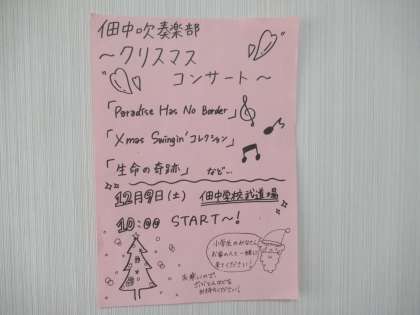 佃中吹奏楽部
～クリスマス
コンサート～
「Paradise Has No Border」
「Xmas Swingin' コレクション」
「生命の奇跡」 など…
12月9日(土) 佃中学校武道場
10:00 START～!
小学生のみなさん
お家の人と一緒に
来てください!
お寒いので、
お待ちください!